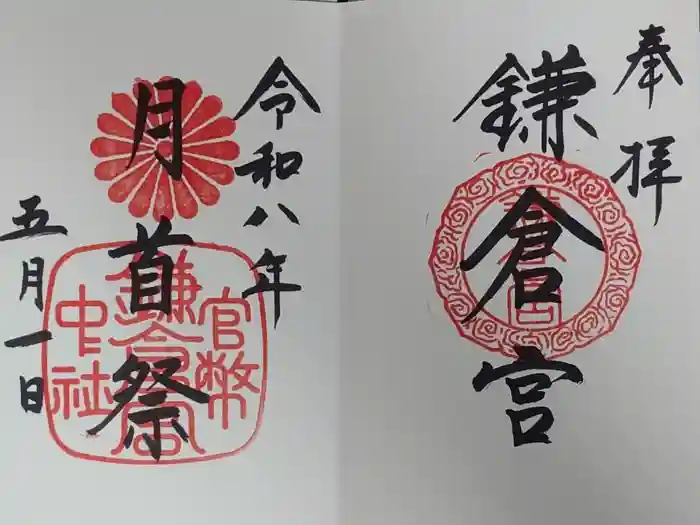 奉拝
鎌倉宮
令和八年
月首祭
五月一日
官幣
鎌倉宮
中社